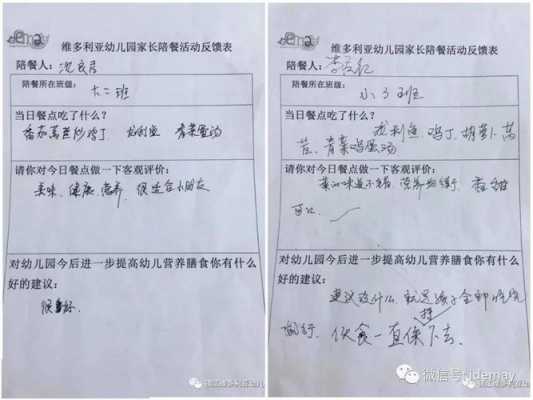 emay
维多利亚幼儿园家长陪餐活动反馈表
陪餐人:
陪餐所在班级:
大二班
当日餐点吃了什么?
番茄莴苣炒鸡丁 龙利鱼 青菜蛋汤
请你对今日餐点做一下客观评价:
美味、健康、营养、很适合小朋友
对幼儿园今后进一步提高幼儿营养膳食你有什么
好的建议:
很好.
emay
维多利亚幼儿园家长陪餐活动反馈表
陪餐人:
陪餐所在班级:
小3班
当日餐点吃了什么?
龙利鱼、鸡丁、胡萝卜、莴
苣、青菜鸡蛋汤
请你对今日餐点做一下客观评价:
菜的味道不错、营养均衡
可以
对幼儿园今后进一步提高幼儿营养膳食你有什么
好的建议:
建议没什么、就是孩子全部吃完
就行、伙食一直保持下去、
微信号: idemay